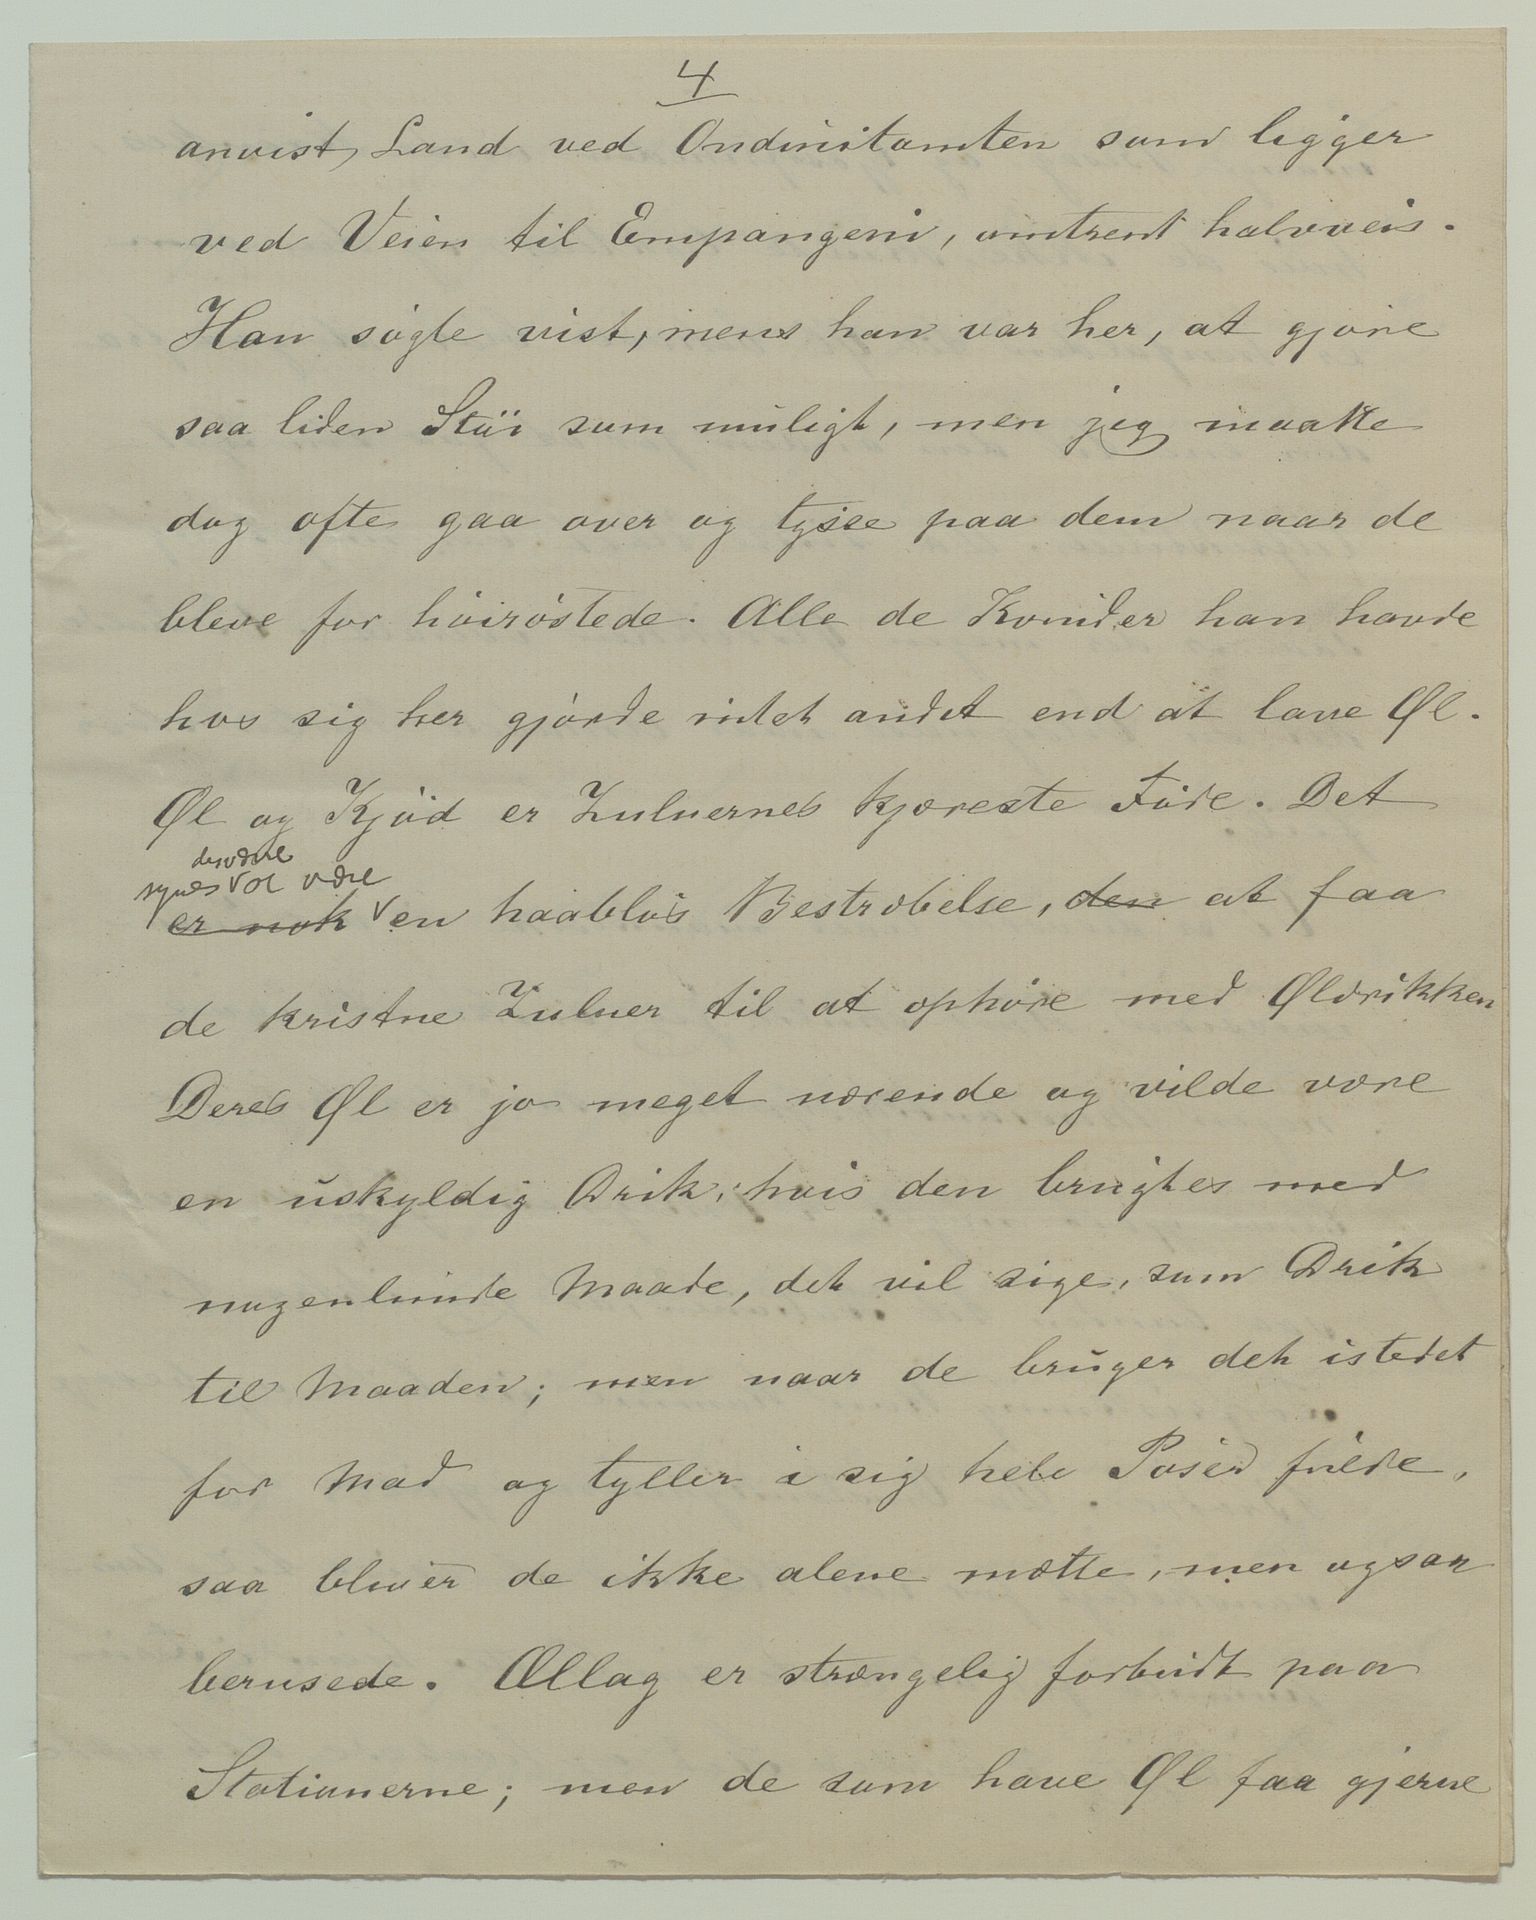 4
anvist Land ved Ondinitomten som ligger
ved Veien til Empangeni, omtrent halvveis.
Han søgte vist, mens han var her, at gjøre
saa liden Støi som muligt, men jeg maatte
dog ofte gaa over og tysse paa dem naar de
bleve for høirøstede. Alle de Kvinder han havde
hos sig her gjorde intet andet end at lave Øl.
Øl og Kjød er Zuluernes kjæreste Føde. Det
desværre
synes at være
er nok en haabløs Bestræbelse, den at faa
de kristne Zuluer til at ophøre med Øldrikken
Deres Øl er jo meget nærende og vilde være
en uskyldig Drik, hvis den brugtes med
nogenlunde Maade, det vil sige, som Drik
til Maaden; men naar de bruger det istedet
for Mad og tyller i sig hele Poser fulde,
saa bliver de ikke alene mætte, men ogsaa
berusede. Øllag er strængelig forbudt paa
Stationerne; men de som have Øl faa gjerne